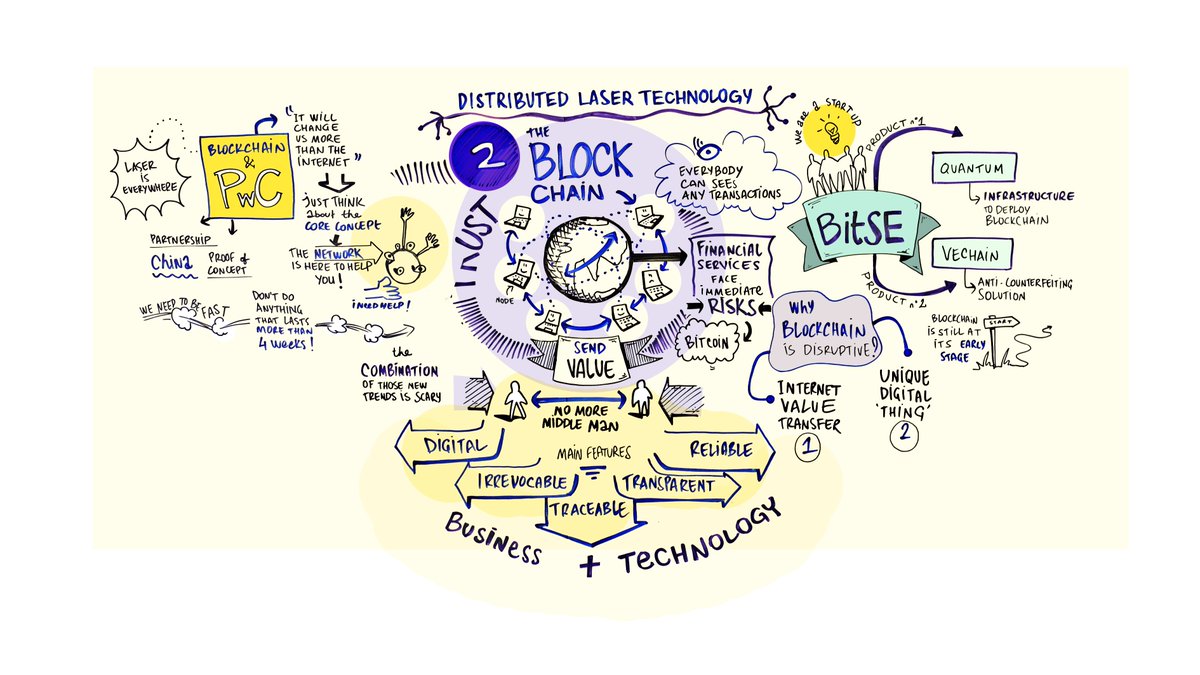 DISTRIBUTED LASER TECHNOLOGY
LASER
IS
EVERYWHERE
BLOCKCHAIN
&
PWC
"IT WILL
CHANGE
US MORE
THAN THE
INTERNET"
JUST THINK
about the
CORE CONCEPT
PARTNERSHIP
CHINA
PROOF of
CONCEPT
THE NETWORK
IS HERE TO HELP
YOU!
I NEED HELP!
WE NEED TO BE FAST
DON'T DO
ANYTHING
THAT LASTS
MORE THAN
4 WEEKS!
the
COMBINATION
OF THOSE NEW
TRENDS IS SCARY
2
THE
BLOCK
CHAIN
TRUST
NODE
SEND
VALUE
NO MORE
MIDDLE MAN
MAIN FEATURES
DIGITAL
IRREVOCABLE
TRACEABLE
TRANSPARENT
RELIABLE
BUSINESS + TECHNOLOGY
EVERYBODY
CAN SEES
ANY TRANSACTIONS
FINANCIAL
SERVICES
FACE
IMMEDIATE
RISKS
BITCOIN
WE ARE A START UP
BitSE
PRODUCT n°1
QUANTUM
INFRASTRUCTURE
TO DEPLOY
BLOCKCHAIN
PRODUCT n°2
VECHAIN
ANTI-COUNTERFEITING
SOLUTION
WHY
BLOCKCHAIN
IS DISRUPTIVE?
INTERNET
VALUE
TRANSFER
1
UNIQUE
DIGITAL
'THING'
2
BLOCKCHAIN
IS STILL AT
ITS EARLY
STAGE
START